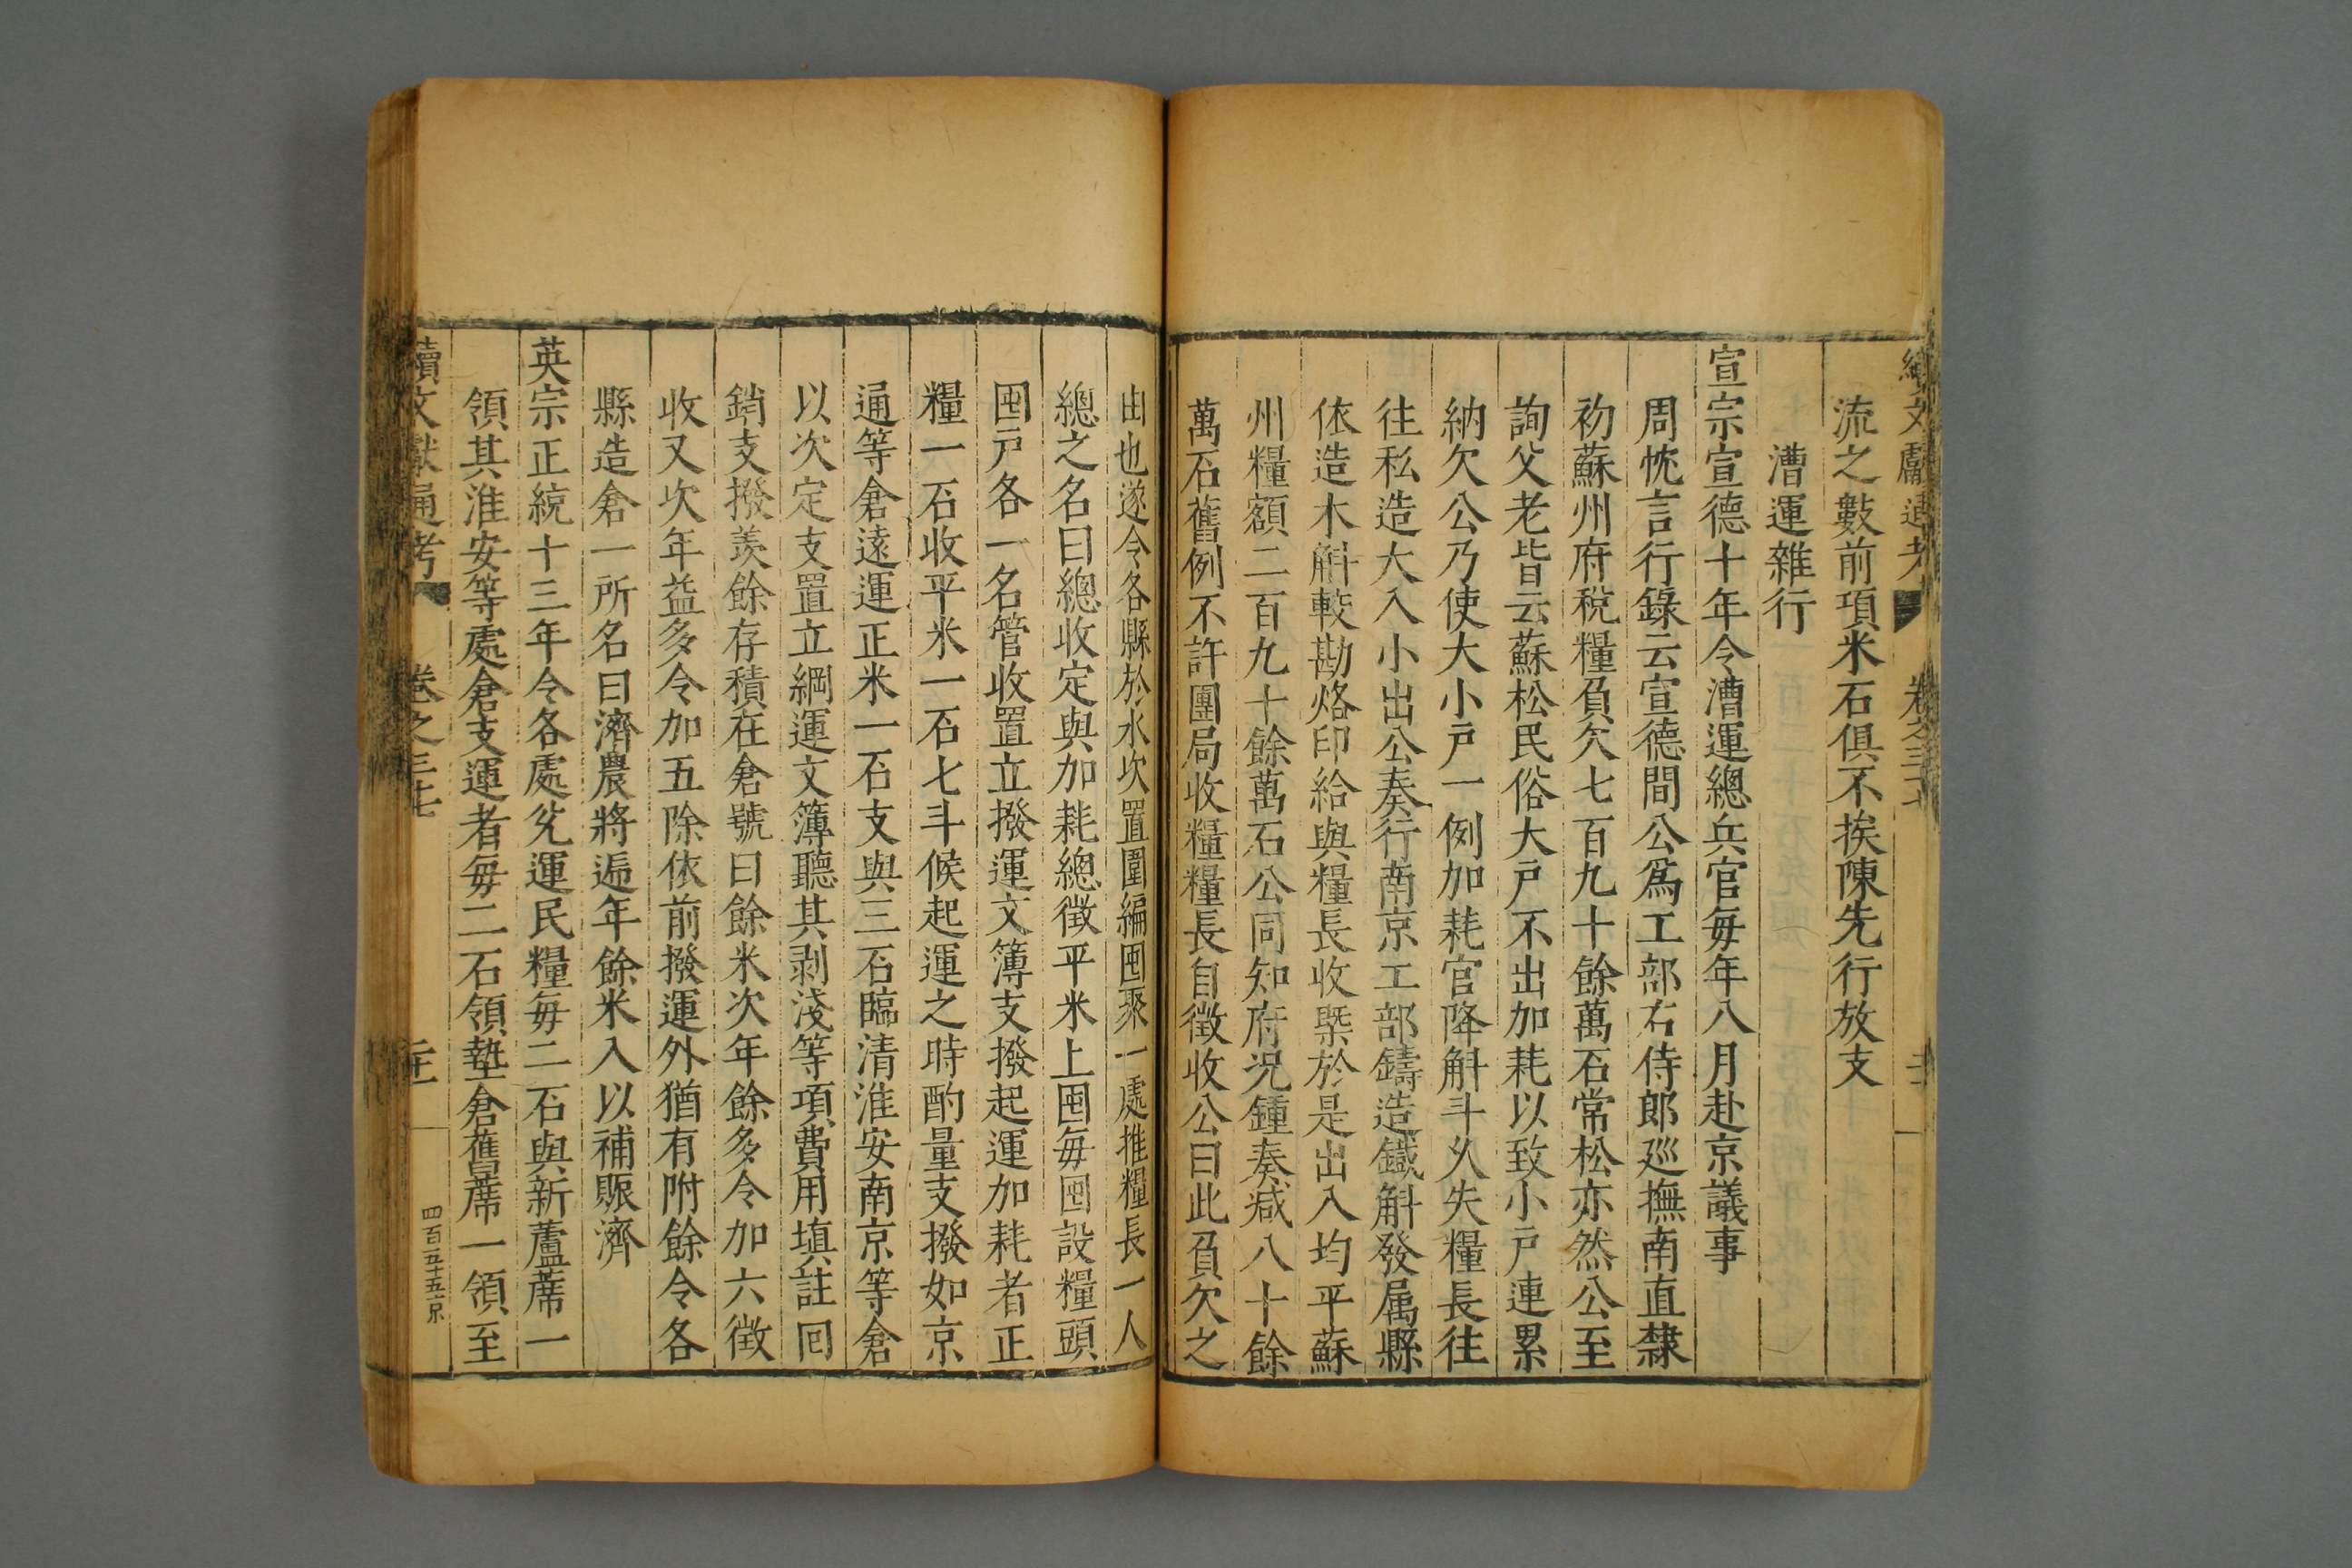 續文獻通考
卷之三十七
流之數前項米石俱不挨陳先行放支
漕運雜行
宣宗宣德十年令漕運總兵官每年八月赴京議事
周忱言行錄云宣德間公爲工部右侍郎巡撫南直隸
初蘇州府稅糧負欠七百九十餘萬石常松亦然公至
詢父老皆云蘇松民俗大戶不出加耗以致小戶連累
納欠公乃使大小戶一例加耗官降斛斗乆失糧長往
往私造大入小出公奏行南京工部鑄造鐵斛發属縣
依造木斛較勘烙印給與糧長收槩於是出入均平蘇
州糧額二百九十餘萬石公同知府况鍾奏减八十餘
萬石舊例不許團局收糧糧長自徵收公曰此負欠之
由也遂令各縣於水次置圍編囤聚一處推糧長一人
總之名曰總收定與加耗總徵平米上囤每囤設糧頭
囤戶各一名管收置立撥運文簿支撥起運加耗者正
糧一石收平米一石七斗候起運之時酌量支撥如京
通等倉遠運正米一石支與三石臨清淮安南京等倉
以次定支置立綱運文簿聽其剥淺等項費用填註囘
銷支撥羨餘存積在倉號曰餘米次年餘多令加六徵
收又次年益多令加五除依前撥運外猶有附餘令各
縣造倉一所名曰濟農將遞年餘米入以補賑濟
英宗正統十三年令各處兊運民糧每二石與新蘆蓆一
領其淮安等處倉支運者每二石領墊倉舊蓆一領至
續文獻通考
卷之三十七
二十一
四百五十五京